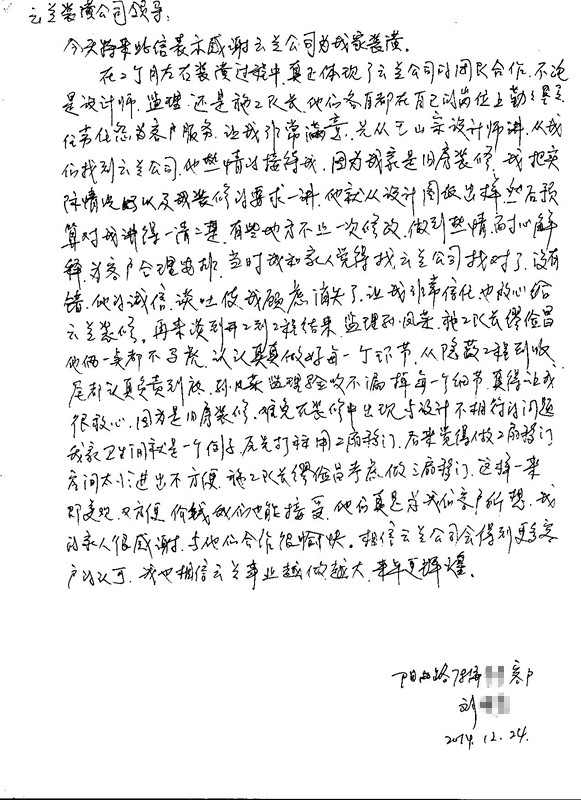 云兰装潢公司领导:
今天特来此信表示感谢云兰公司为我家装潢。
在2个月左右装潢过程中,真正体现了云兰公司的团队合作,不论
是设计师、监理、还是施工队长,他们各自都在自己的岗位上勤勤恳恳
任劳任怨为客户服务,让我非常满意。先从王山宗设计师讲,从我
们找到云兰公司,他热情的接待我,因为我家是旧房装修,我把实
际情况以及我装修的要求一讲,他就从设计图纸出样,然后预
算对我讲得一清二楚,有些地方不止一次修改,做到热情而耐心解
释,为客户合理安排,当时我和家人觉得找云兰公司找对了,没有
错,他的诚信,谈吐使我顾虑消失了,让我非常信任也放心给
云兰装修。再来谈到开工到工程结束,监理孙凤荣,施工队长缪俭昌
他俩一点都不马虎,认认真真做好每一个环节,从隐蔽工程到收
尾都认真负责到底,孙凤荣监理验收不漏掉每一个细节,真得让我
很放心,因为是旧房装修,难免在装修中出现与设计不相符的问题
我家卫生间就是一个例子,原先打算用2扇移门,后来觉得做2扇移门
房间太小进出不方便,施工队长缪俭昌考虑做三扇移门,这样一来
即美观,又方便,价钱我们也能接受,他们真是为我们客户所想,我
的家人很感谢,与他们合作很愉快。相信云兰公司会得到更多客
户的认可,我也相信云兰事业越做越大,来年更辉煌。
路78弄 客户
刘
2014.12.24.